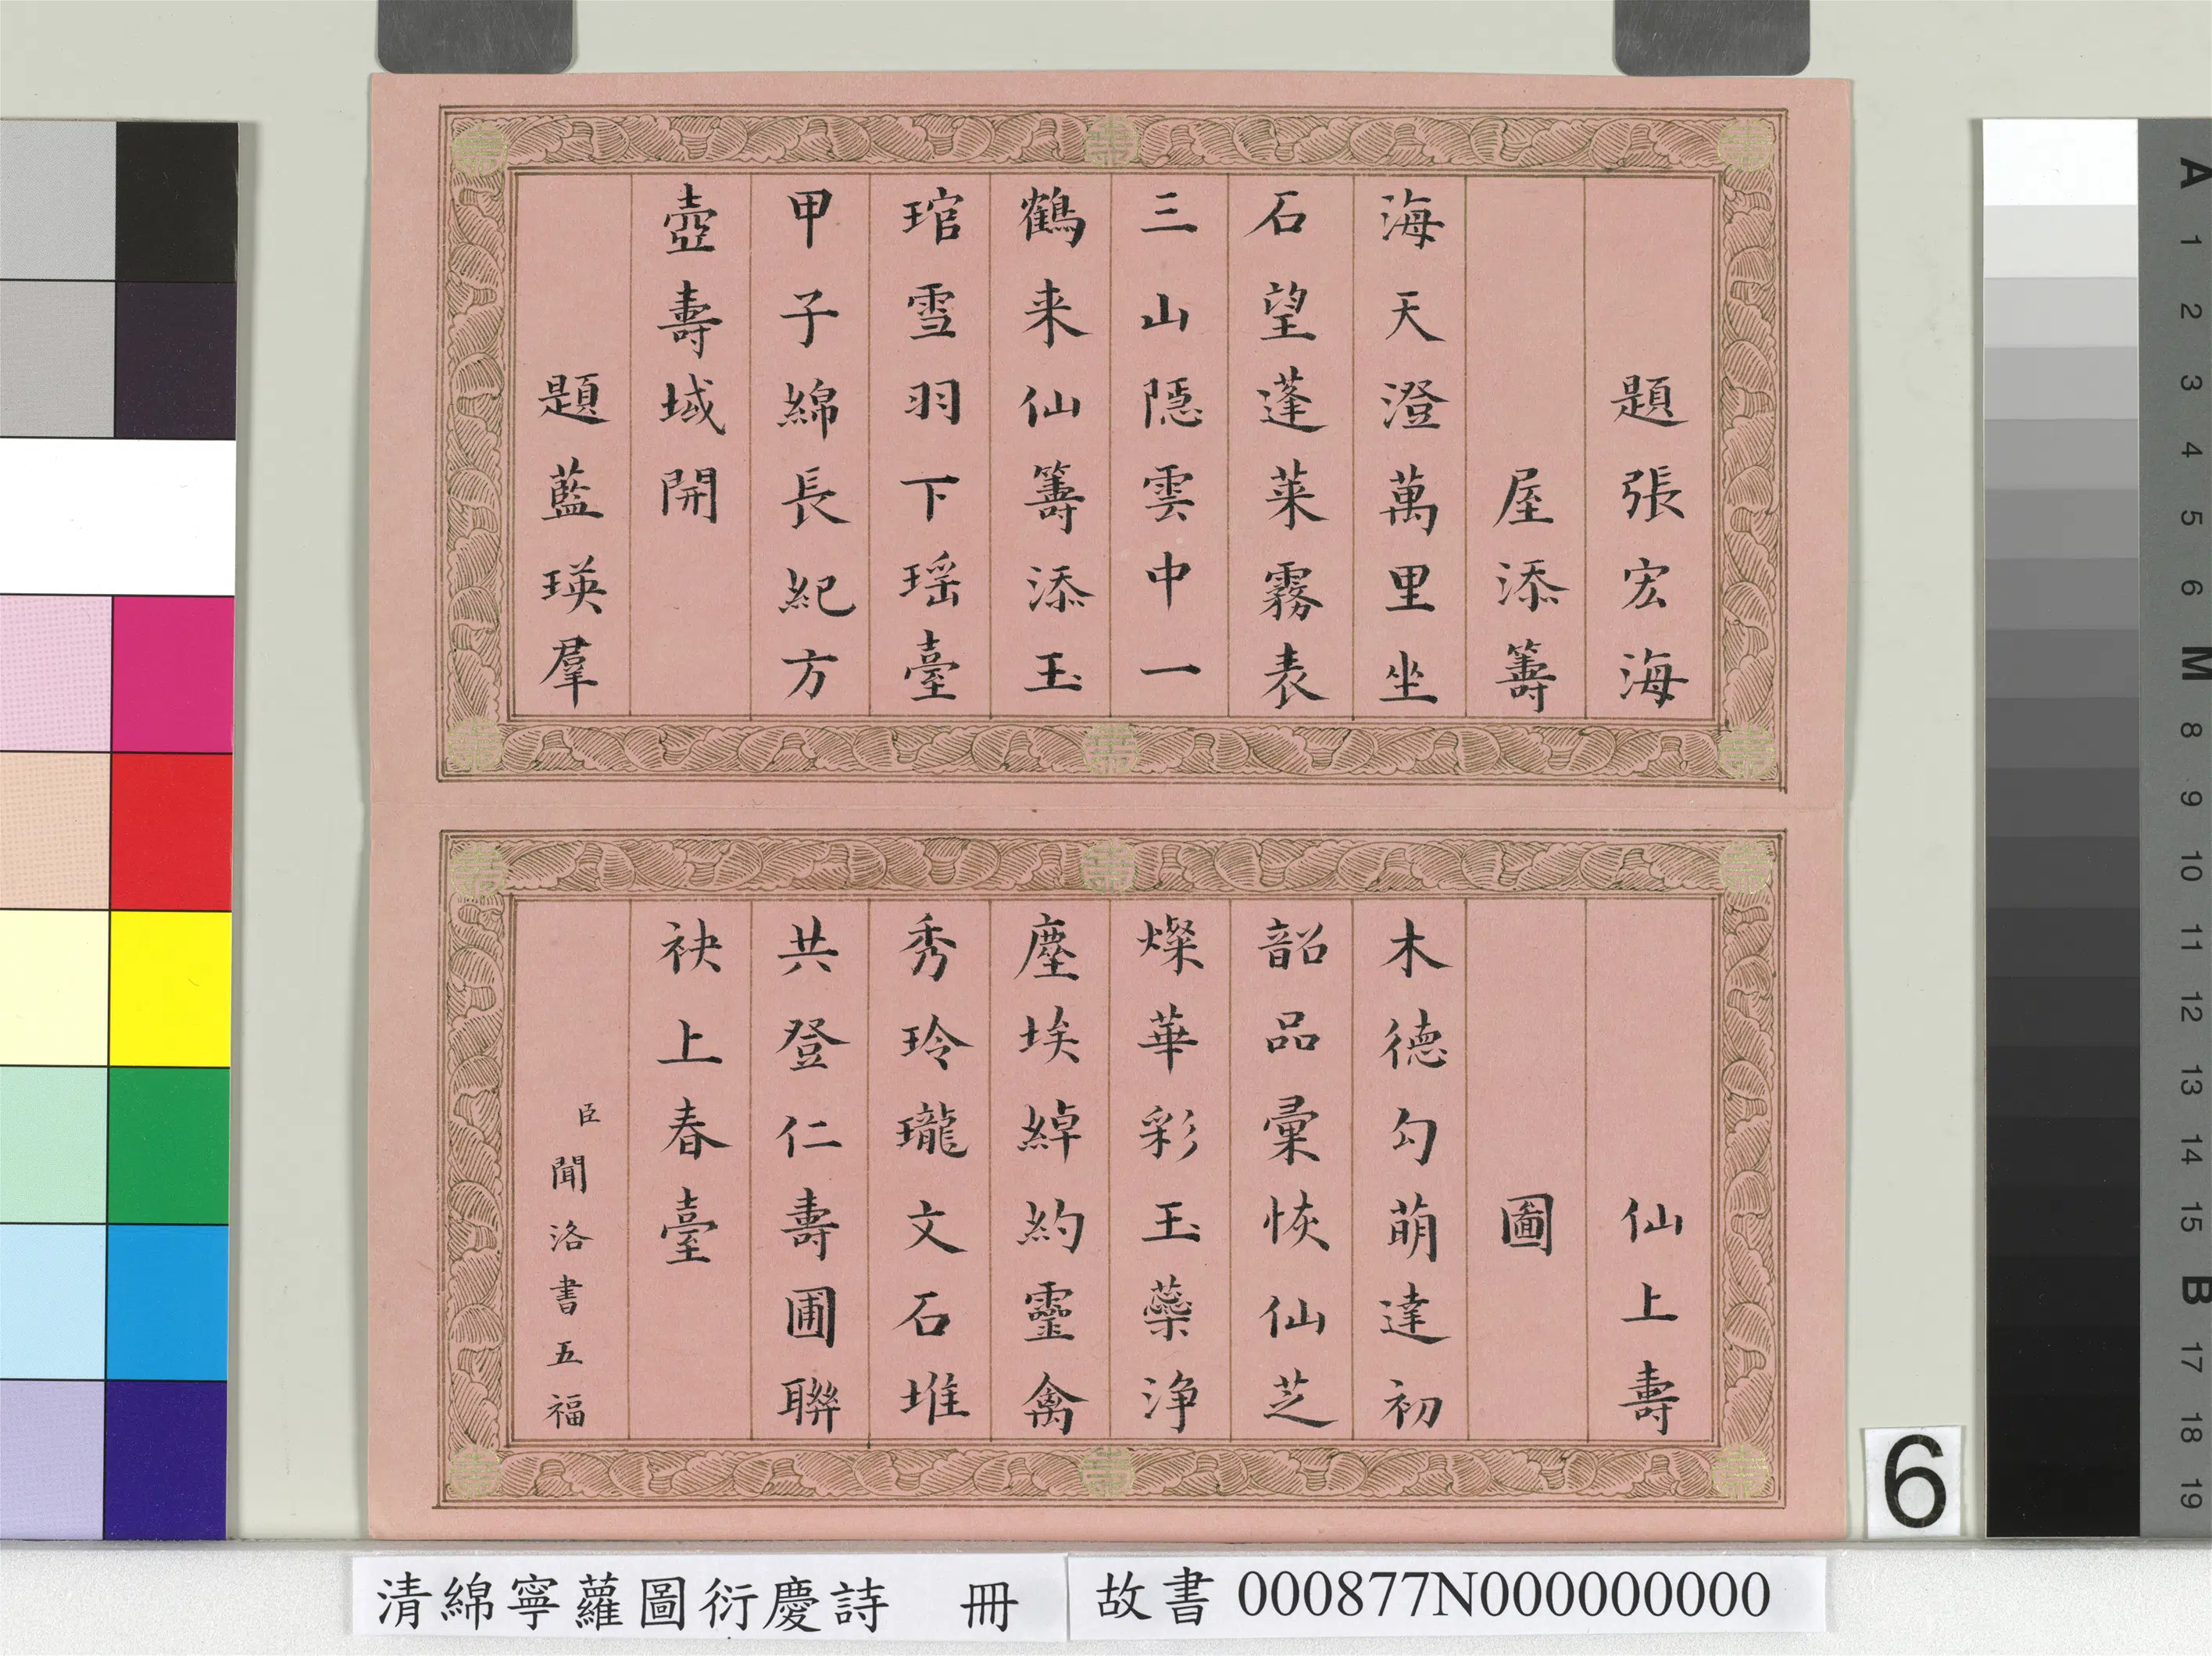 題張宏海
屋添籌
海天澄萬里坐
石望蓬萊霧表
三山隱雲中一
鶴来仙籌添玉
琯雪羽下瑶臺
甲子綿長紀方
壺壽域開
題藍瑛羣
仙上壽
圖
木德勾萌達初
韶品彙恢仙芝
燦華彩玉蘂浄
塵埃綽約靈禽
秀玲瓏文石堆
共登仁壽圃聯
袂上春臺
臣聞洛書五福
6
清綿寧蘿圖衍慶詩 冊
故書000877N000000000
A
1
2
3
4
5
6
M
8
9
10
11
12
13
14
15
B
17
18
19